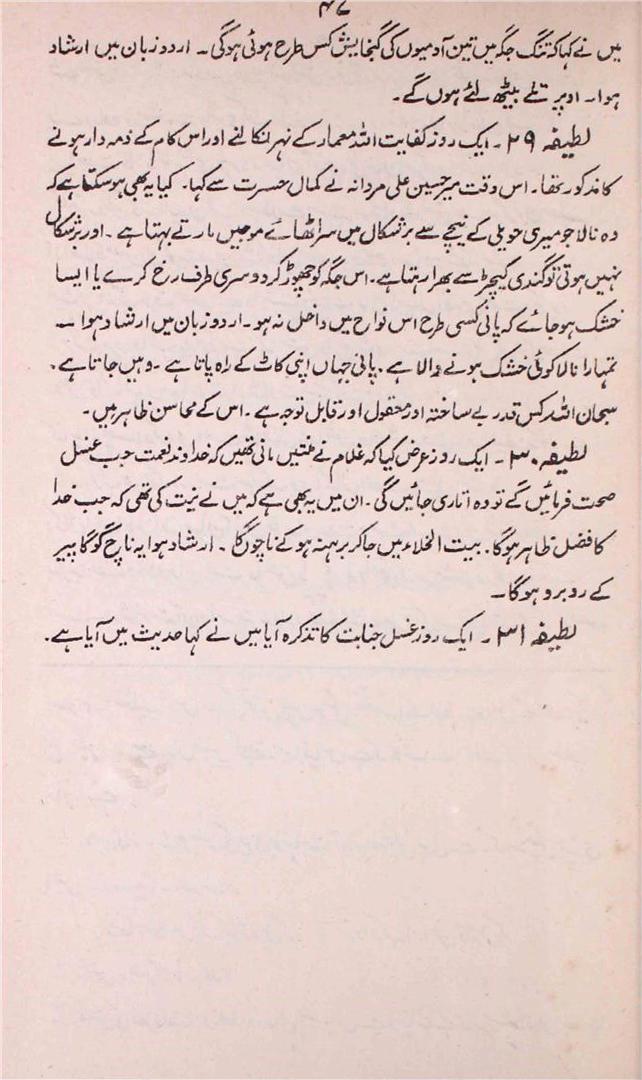 ۴۷
میں نے کہا کہ تنگ جگہ میں تین آدمیوں کی گنجایش کس طرح ہوئی ہوگی۔ اردو زبان میں ارشاد
ہوا۔ اوپر تلے بیٹھ لئے ہوں گے۔
لطیفہ ۲۹۔ ایک روز کفایت اللہ معمار کے نہر نکالنے اور اس کام کے ذمہ دار ہونے
کا مذکور تھا۔ اس وقت میر حسین علی مردانہ نے کمال حسرت سے کہا۔ کیا یہ بھی ہو سکتا ہے کہ
وہ نالا جو میری حویلی کے نیچے سے برشکال میں سر اٹھائے موجیں مارتے بہتا ہے۔ اور برشکال
نہیں ہوتی تو گندی کیچڑ سے بھرا رہتا ہے۔ اس جگہ کو چھوڑ کر دوسری طرف رخ کرے یا ایسا
خشک ہو جائے کہ پانی کسی طرح اس نواح میں داخل نہ ہو۔ اردو زبان میں ارشاد ہوا۔
تمہارا نالا کوئی خشک ہونے والا ہے۔ پانی جہاں اپنی کاٹ کے راہ پاتا ہے۔ وہیں جاتا ہے۔
سبحان اللہ کس قدر بے ساختہ اور معقول اور قابل توجہ ہے۔ اس کے محاسن ظاہر ہیں۔
لطیفہ ۳۰۔ ایک روز عرض کیا کہ غلام نے منتیں مانی تھیں کہ خداوند نعمت جب غسل
صحت فرمائیں گے تو وہ اتاری جائیں گی۔ ان میں یہ بھی ہے کہ میں نے نیت کی تھی کہ جب خدا
کا فضل ظاہر ہوگا۔ بیت الخلاء میں جا کر برہنہ ہو کے ناچوں گا۔ ارشاد ہوا یہ ناچ گوگا پیر
کے روبرو ہوگا۔
لطیفہ ۳۱۔ ایک روز غسل جنابت کا تذکرہ آیا میں نے کہا حدیث میں آیا ہے۔